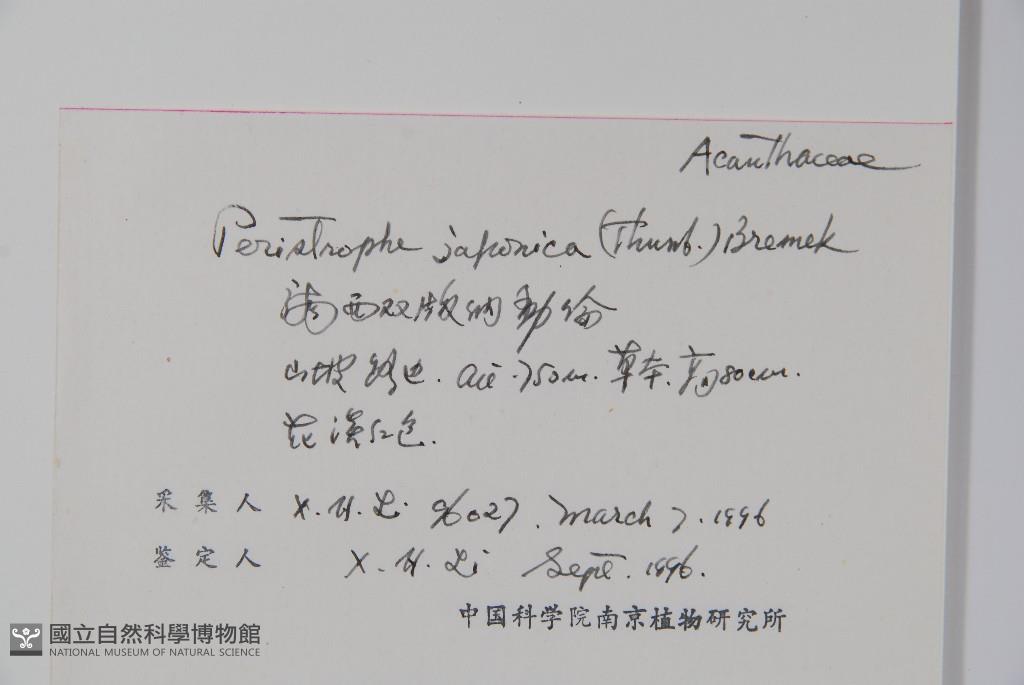 Acanthaceae
Peristrophe japonica (Thunb.) Bremek
滇西双版纳勐仑
山坡路边. alt. 750m. 草本. 高80cm.
花淡红色.
采集人 X. H. Li 96027. March 7. 1996
鉴定人 X. H. Li Sept. 1996.
中国科学院南京植物研究所
國立自然科學博物館
NATIONAL MUSEUM OF NATURAL SCIENCE